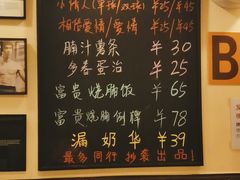 小情人(單球/双球) ¥25/¥45
相恋爱情/蜜情 ¥25/¥45
腩汁薯条 ¥30
多春蛋治 ¥25
富貴烧腩饭 ¥65
富貴烧腩例牌 ¥78
漏奶华 ¥39
最多同行抄袭出品!
B